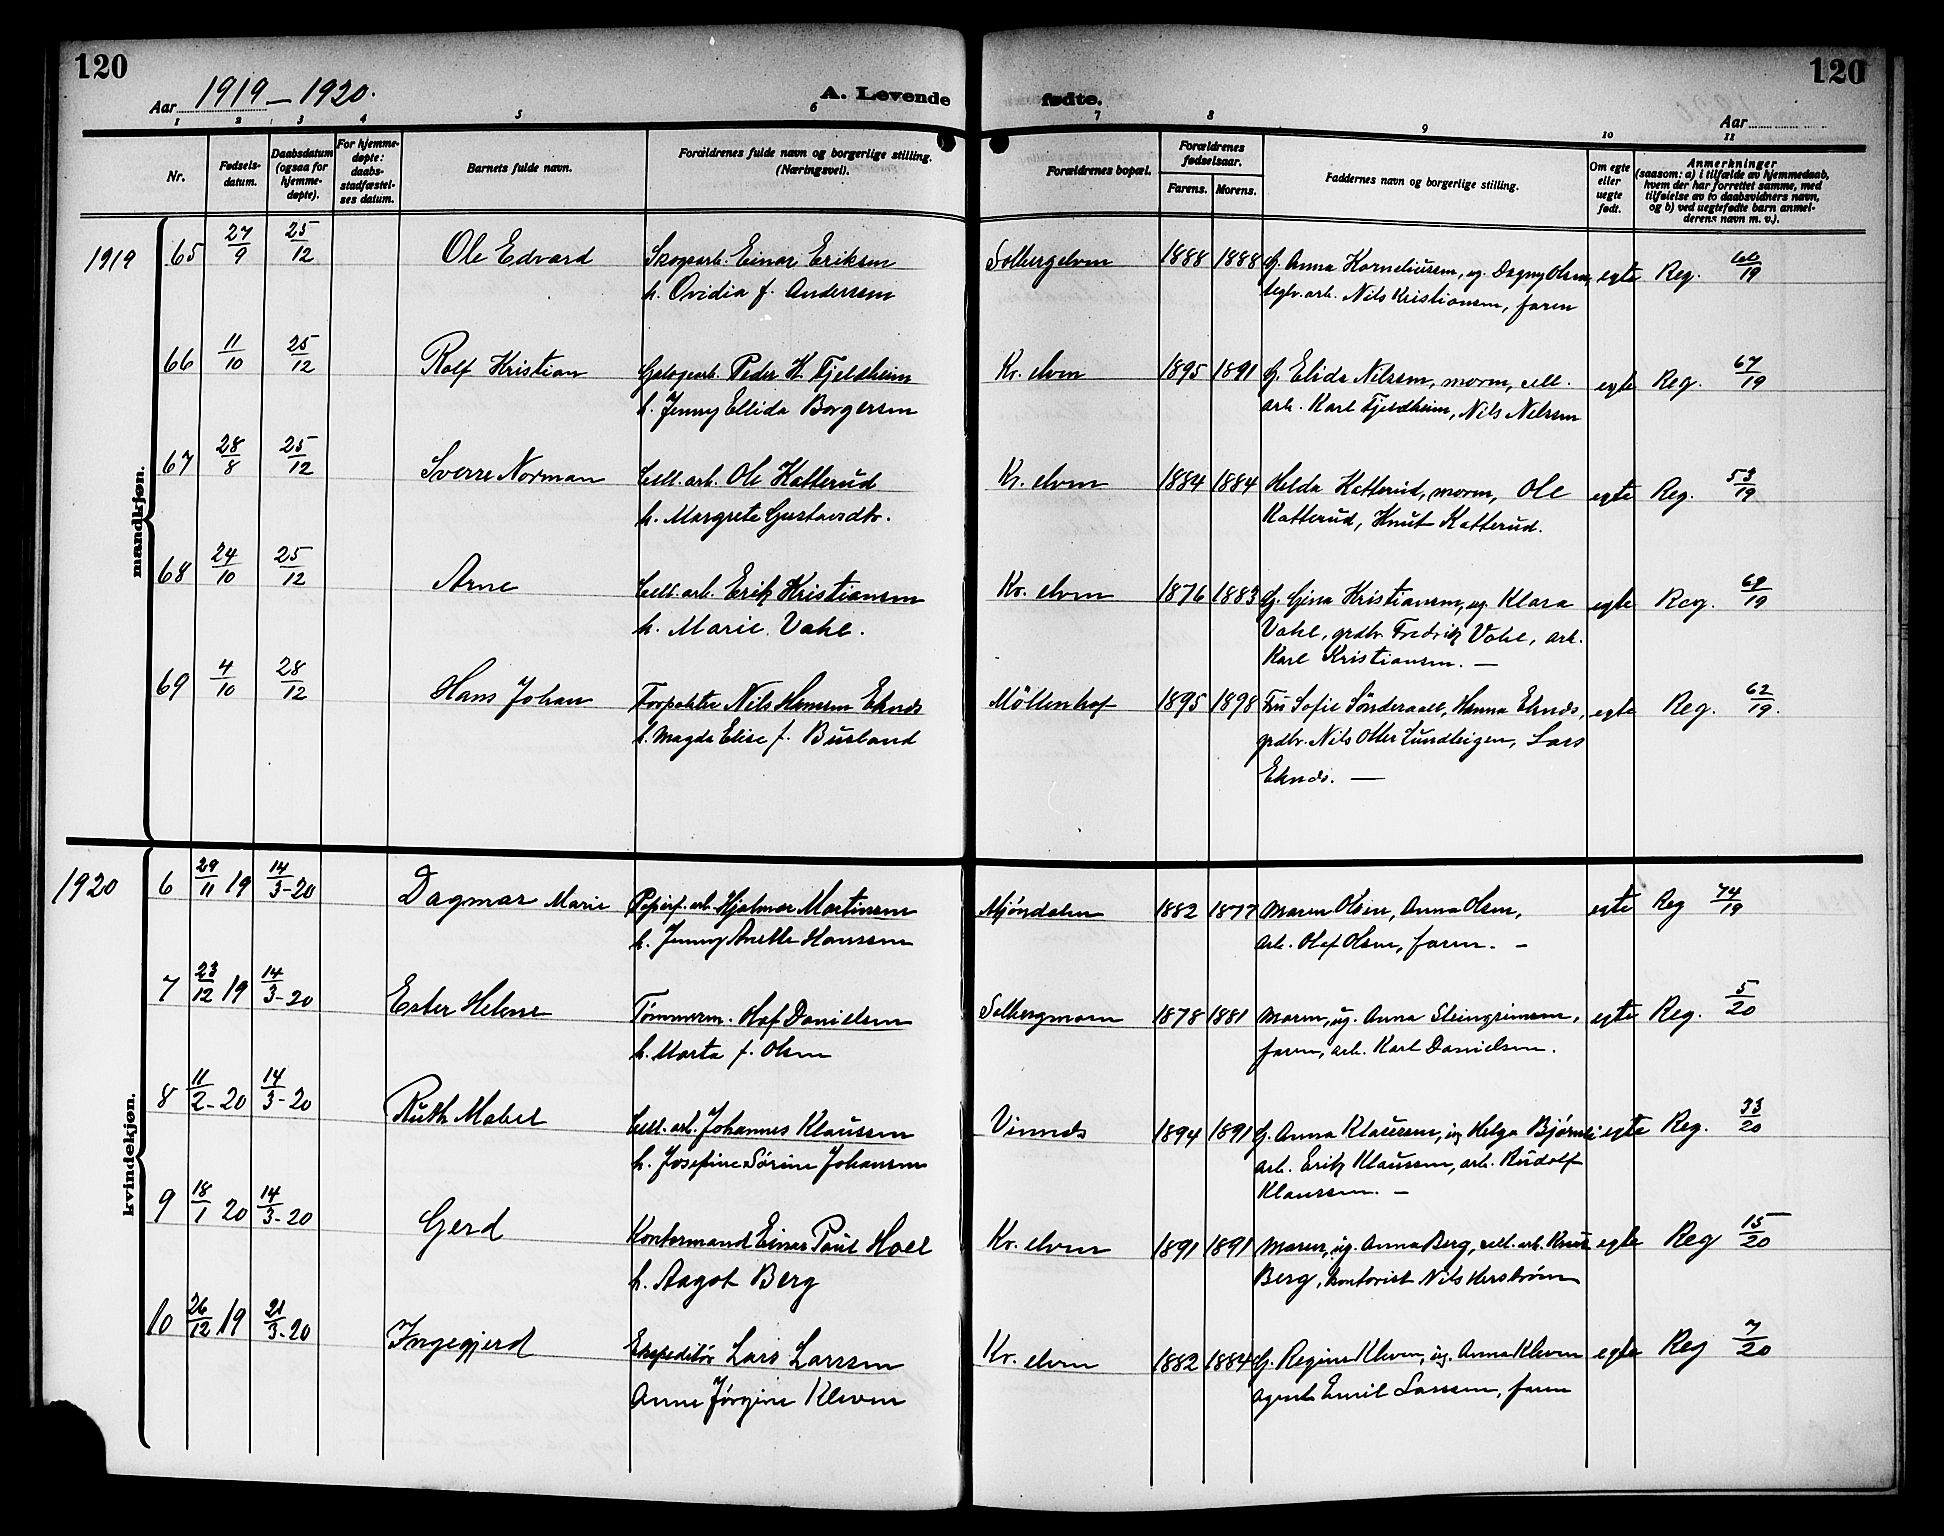 120
120
Aar 1919 – 1920.
A. Levende
fødte.
Aar
1 2 3 4 5 6 7 8 9 10 11
Nr.
Fødsels-
datum.
Daabsdatum
(ogsaa for
hjemme-
døpte).
For hjemme-
døpte:
daabs-
stadfæstel-
ses datum.
Barnets fulde navn.
Forældrenes fulde navn og borgerlige stilling.
(Næringsvei).
Forældrenes bopæl.
Forældrenes
fødselsaar.
Farens. Morens.
Faddernes navn og borgerlige stilling.
Om egte
eller
uegte
født.
Anmerkninger
(saasom: a) i tilfælde av hjemmedaab,
hvem der har forrettet samme, med
tilføielse av to daabsvidners navn,
og b) ved uegtefødte barn anmel-
derens navn m. v.).
mandkjøn.
1919 65 27/9 25/12 Ole Edvard Skogsarb. Einar Eriksen Solbergelven 1888 1888 G. Anna Korneliussen, ug. Dagny Olsen, egte Reg. 66/19
h. Ovidia f. Anderssen teglv.arb. Nils Kristiansen, faren
66 11/10 25/12 Rolf Kristian Peder K. Fjeldheim Kr. elven 1895 1891 G. Elida Nilssen, moren, cell. egte Reg. 67/19
h. Jenny Ellida Borgersen arb. Karl Fjeldheim, Nils Nilssen
67 28/8 25/12 Sverre Norman Cell. arb. Ole Katterud Kr. elven 1884 1884 Helda Katterud, moren, Ole egte Reg. 53/19
h. Margrete Gustavsdtr. Katterud, Knut Katterud.
68 24/10 25/12 Arne Cell. arb. Erik Kristiansen Kr. elven 1876 1883 G. Gina Kristiansen, ug. Klara egte Reg. 69/19
h. Marie Vahl. Vahl, grdbr. Fredrik Vahl, arb.
Karl Kristiansen. —
69 4/10 28/12 Hans Johan Forpakter Nils Hansen Eknes Möllenhof 1895 1898 Fru Sofie Sønderaal, Hanna Eknes, egte Reg. 62/19.
h. Magda Elise f. Busland grdbr. Nils Otter Lundteigen, Lars
Eknes. —
kvindekjøn.
1920 6 29/11 19 14/3-20 Dagmar Marie Papirf. arb. Hjalmar Martinsen Mjøndalen 1882 1877 Maren Olsen, Anna Olsen, egte Reg 74/19
h. Jenny Anette Hanssen arb. Olaf Olsen, faren. –
7 23/12 19 14/3-20 Ester Helene Tømmerm. Olaf Danielsen Solbergmoen 1878 1881 moren, ug. Anna Steingrimsen, egte Reg. 5/20
h. Marta f. Olsen faren, arb. Karl Danielsen.
8 11/2-20 14/3-20 Ruth Mabel Cell. arb. Johannes Klaussen Vinnes 1894 1891 G. Anna Klaussen, ug Helga Bjørnli egte Reg. 33/20
h. Josefine Sørine Johansen arb. Erik Klaussen, arb. Rudolf
Klaussen. –
9 18/1 20 14/3-20 Gerd Kontormand Einar Paul Hoel Kr. elven 1891 1891 Moren, ug. Anna Berg, cell. arb. Knut egte Reg 15/20
h. Aagot Berg Berg, kontorist Nils Herstrøm
10 26/12 19 21/3-20 Ingegjerd Ekspeditør Lars Larssen Kr. elven 1882 1884 G. Regine Kleven, ug. Anna Kleven egte Reg 7/20
Anne Jørgine Kleven agent Emil Larssen, faren